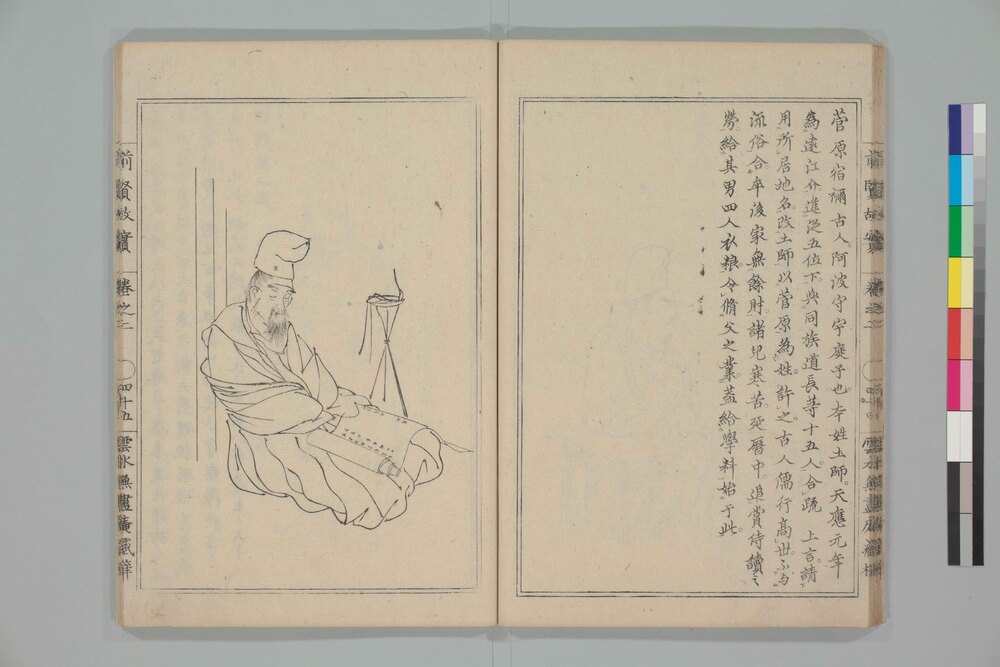 菅原宿禰古人。阿波守宇庭子也。本姓土師。天應元年
為遠江介。進從五位下。與同族道長等十五人。合疏　上言。請
用所居地名。改土師以菅原為姓。許之。古人儒行高世。不与
流俗合。卒後家無餘財。諸兒寒苦。延曆中。追賞侍讀之
勞。給其男四人衣粮。令脩父之業。蓋給學料始于此。
前賢故實
卷之二
四十五